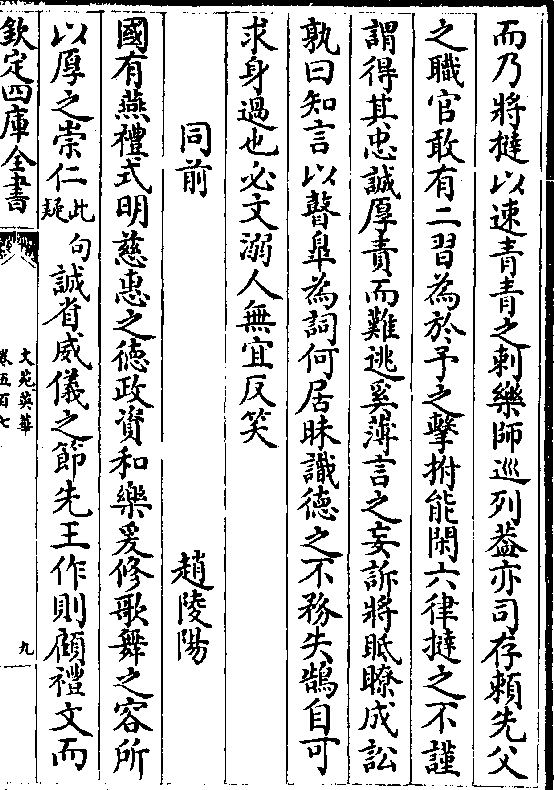 而乃將撻以速青青之刺樂師巡列葢亦司存頼先父
之職官敢有二習為於予之擊拊能閑六律撻之不謹
謂得其忠誠厚責而難逃奚薄言之妄訴將眂瞭成訟
孰曰知言以瞽辠為詞何居昧識徳之不務失鵠自可
求身過也必文溺人無宜反笑
同前 趙陵陽
國有燕禮式明慈惠之徳政資和樂爰修歌舞之容所
以厚之崇仁此句疑誠省威儀之節先王作則頋禮文而
欽定四庫全書
文苑英華
卷五百七
九